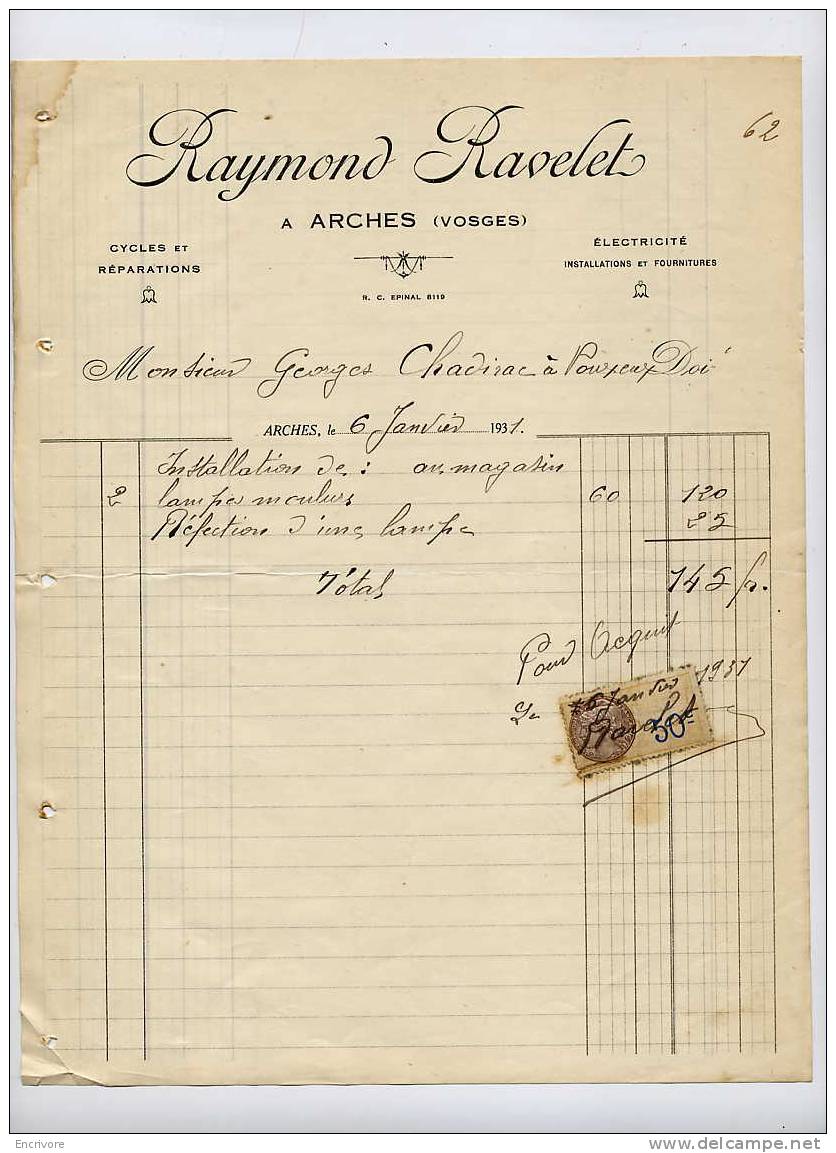 62
Raymond Ravelet
A ARCHES (VOSGES)
CYCLES ET
RÉPARATIONS
ÉLECTRICITÉ
INSTALLATIONS ET FOURNITURES
R. C. EPINAL 6119
Monsieur Georges Chadirac à Pouxeux Doit
ARCHES, le 6 Janvier 1931.
Installation de : au magasin
2 lampes moulures 60 120
Réfection d'une lampe 25
Total 145 fr.
Pour Acquit
Le 6 Janvier 1931
Ravelet
50c
Encrivore
www.delcampe.net